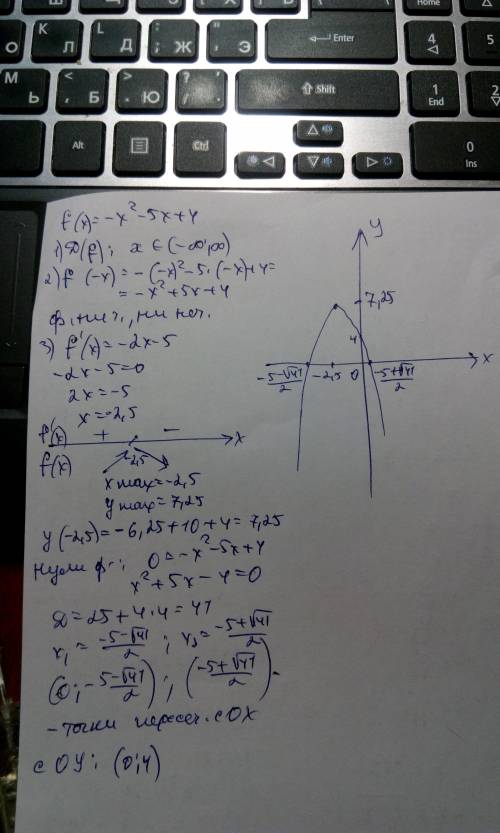 О К Л Д : Ж " Э Enter Home 4 5
М Ь < , Б > . Ю ? / Shift 1 End 2
Alt Ctrl 0 Ins
f(x)=-x²-5x+4
1) D(f): x ∈ (-∞;∞)
2) f(-x)=-(-x)²-5·(-x)+4=
=-x²+5x+4
ф. ни ч., ни неч.
3) f'(x)=-2x-5
-2x-5=0
2x=-5
x=-2,5
f'(x) + - x
f(x) -2,5
x max=-2,5
y max=7,25
y(-2,5)=-6,25+10+4=7,25
Нули ф-: 0=-x²-5x+4
x²+5x-4=0
D=25+4·4=41
x₁=(-5-√41)/2; x₂=(-5+√41)/2
(0;-5-√41/2); (-5+√41/2)-
-точки пересеч. с OX
с OY: (0;4)
y
7,25
4
-5-√41/2 -2,5 0 -5+√41/2 x